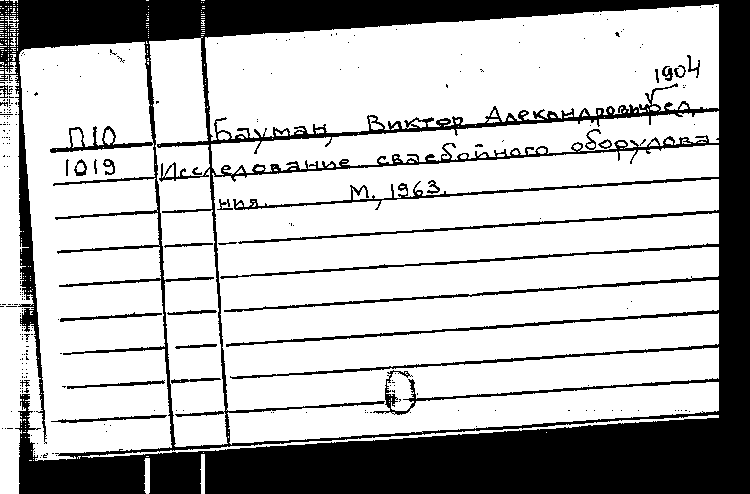 1904
П10 Бауман, Виктор Алекандрович ред.
1019 Исследование сваебойного оборудова-
ния. М., 1963.